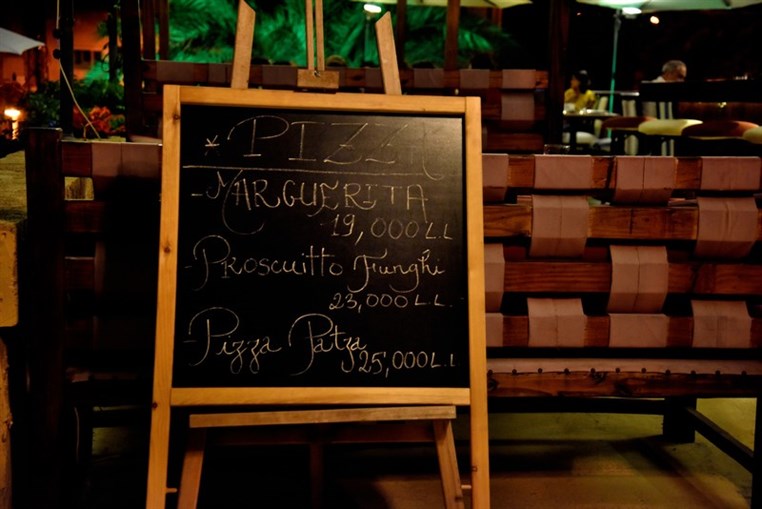 * PIZZA
- MARGUERITA
19,000 L.L
- Proscuitto Funghi
23,000 L.L.
- Pizza Patza
25,000 L.L